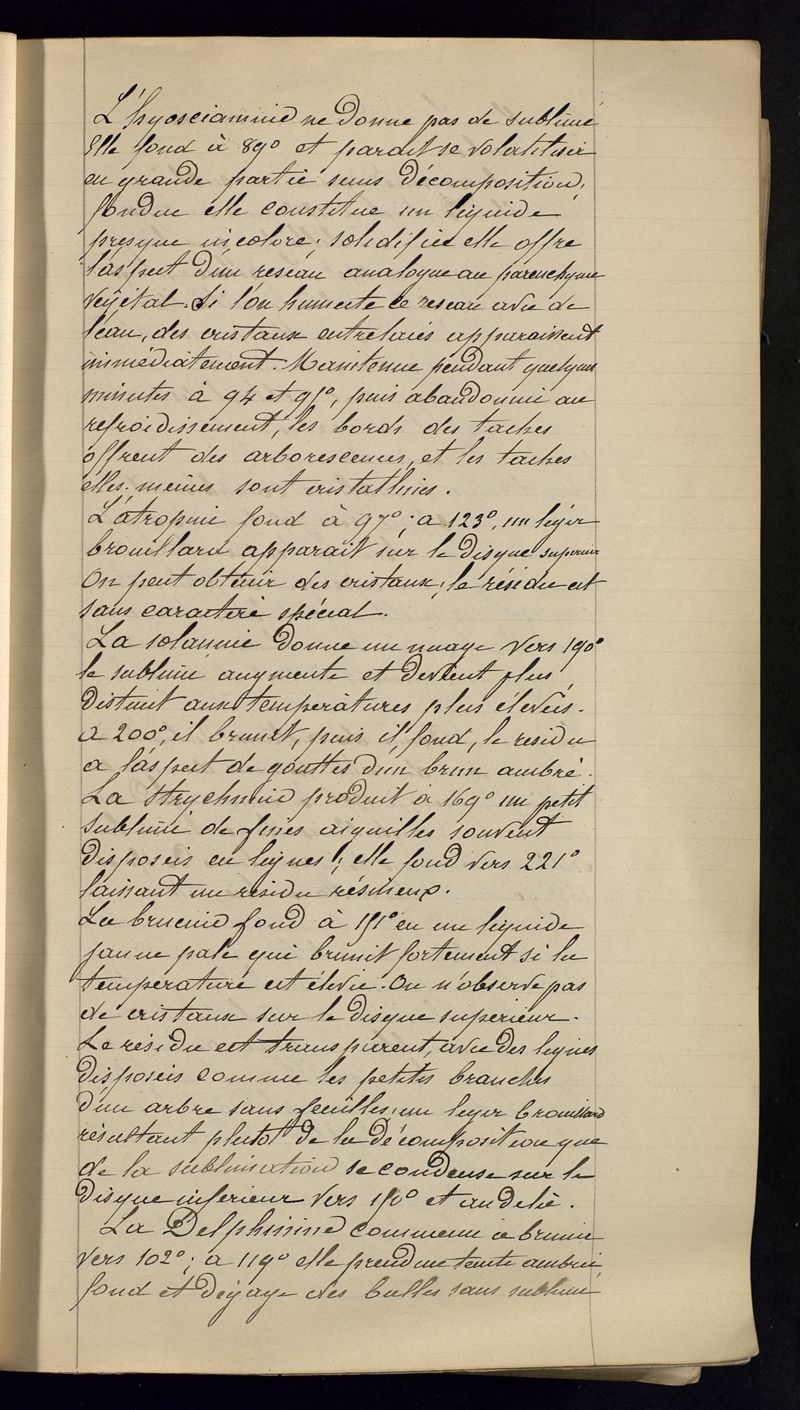 L'hyosciamine ne donne pas de sublimé
Elle fond à 89° et parait se volatiliser
en grande partie sans décomposition,
fondue elle constitue un liquide
presque incolore; solidifiée elle offre
l'aspect d'un reseau analogue au parenchyme
végétal. Si l'on humecte ce reseau avec de
l'eau, des cristaux entrelacés apparaissent
immédiatement. Maintenue pendant quelques
minutes à 94 et 95°, puis abandonnée au
refroidissement, les bords des taches
offrent des arborescences, et les taches
elles-mêmes sont cristallines.
L'atropine fond à 97°; a 123°, un léger
brouillard apparait sur le disque superieur
On peut obtenir des cristaux; le résidu est
sans caractère spécial.
La solanine donne un nuage vers 190°
le sublimé augmente et devient plus
distinct aux températures plus élevées.
a 200°, il brunit, puis il fond, le residu
a l'aspect de gouttes d'un brun ambré.
La strychnine produit à 169° un petit
sublimé de fines aiguilles souvent
disposeis en lignes; elle fond vers 221°
laissant un residu résineux.
La brucine fond à 151° en un liquide
jaune pale qui brunit fortement si la
temperature est élevée. On n'observe pas
de cristaux sur le disque superieur.
Le résidu est transparent, avec des lignes
disposeis comme les petites branches
d'un arbre sans feuilles; un leger brouillard
résultant plutot de la décomposition que
de la sublimation se condense sur le
disque inferieur vers 150° et au delà.
La Delphinine commence à brunir
vers 102°; a 119° elle prend une teinte ambrée
fond et dégage des bulles sans sublimé